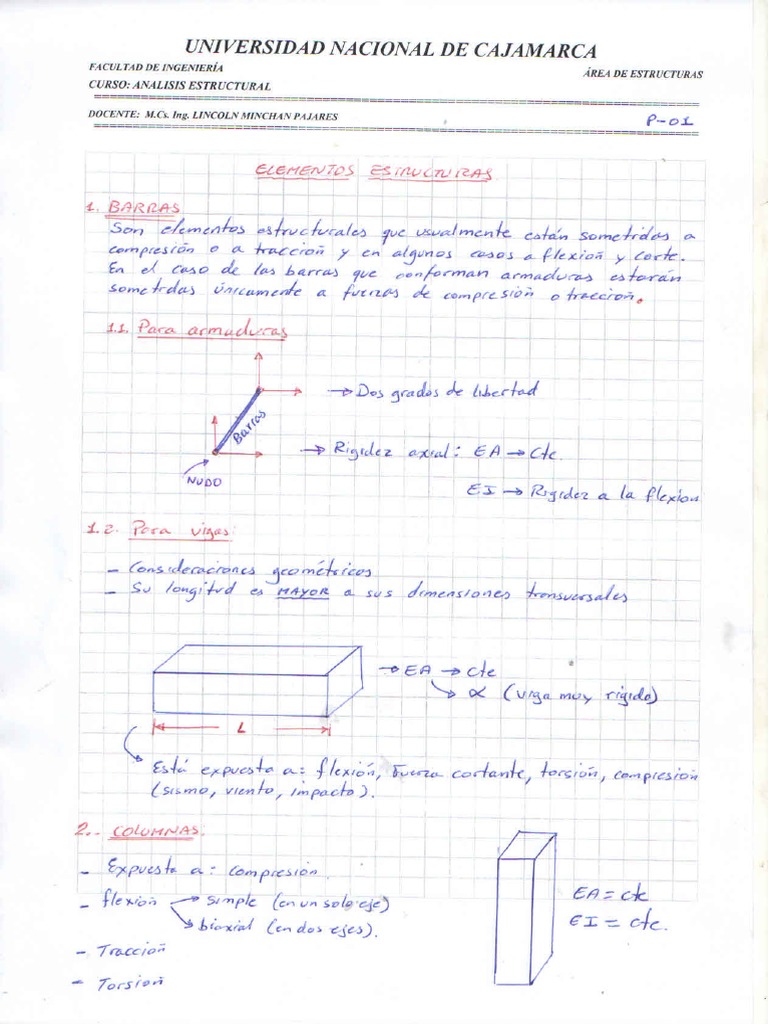 UNIVERSIDAD NACIONAL DE CAJAMARCA
FACULTAD DE INGENIERÍA
ÁREA DE ESTRUCTURAS
CURSO: ANALISIS ESTRUCTURAL
DOCENTE: M.Cs. Ing. LINCOLN MINCHAN PAJARES
P-01
ELEMENTOS ESTRUCTURAS
1. BARRAS
Son elementos estructurales que usualmente están sometidas a
compresión o a tracción y en algunos casos a flexión y corte.
En el caso de las barras que conforman armaduras estarán
sometidas únicamente a fuerzas de compresión o tracción.
1.1. Para armaduras
→ Dos grados de libertad
Barras
→ Rigidez axial: EA → Cte.
NUDO
EI → Rigidez a la flexion
1.2. Para vigas:
- Consideraciones geométricas
- Su longitud es MAYOR a sus dimensiones transversales
→ EA → Cte
→ ∝ (viga muy rigida)
L
Está expuesta a: flexión, fuerza cortante, torsión, compresion
(sismo, viento, impacto).
2.- COLUMNAS:
- Expuesta a: compresión.
- flexión → simple (en un solo eje)
→ biaxial (en dos ejes).
- Tracción
- Torsión
EA = cte
EI = cte.